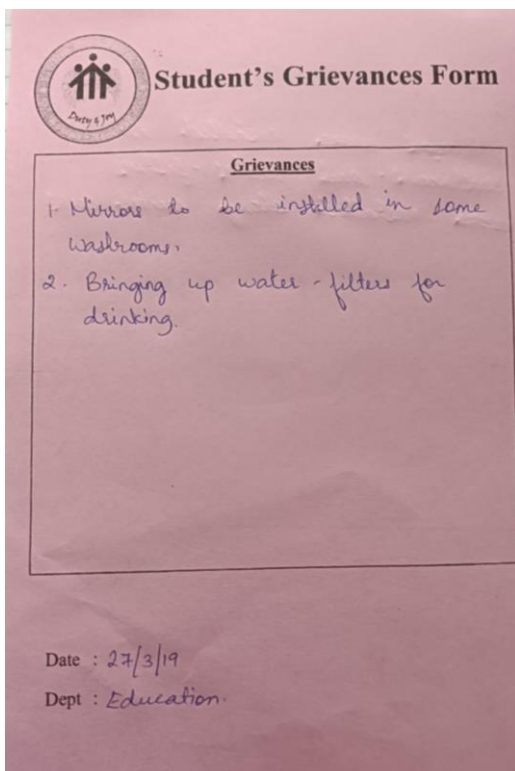 Student's Grievances Form
Duty & Joy
Grievances
1- Mirrors to be installed in some
washrooms.
2. Bringing up water-filters for
drinking.
Date : 27/3/19
Dept : Education.